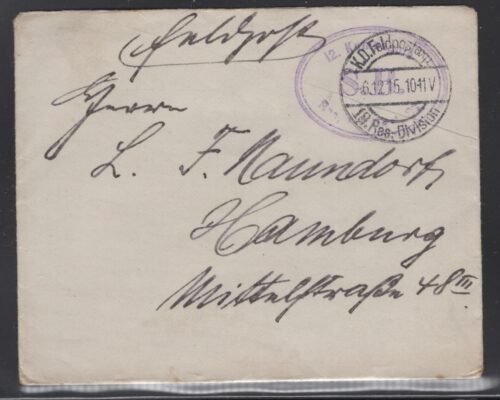 Feldpost
12.
K.D. Feldpostexp.
6.12.15. 10-11V
18. Res.-Division
Herrn
L. F. Naundorf
Hamburg
Mittelstraße 48 III